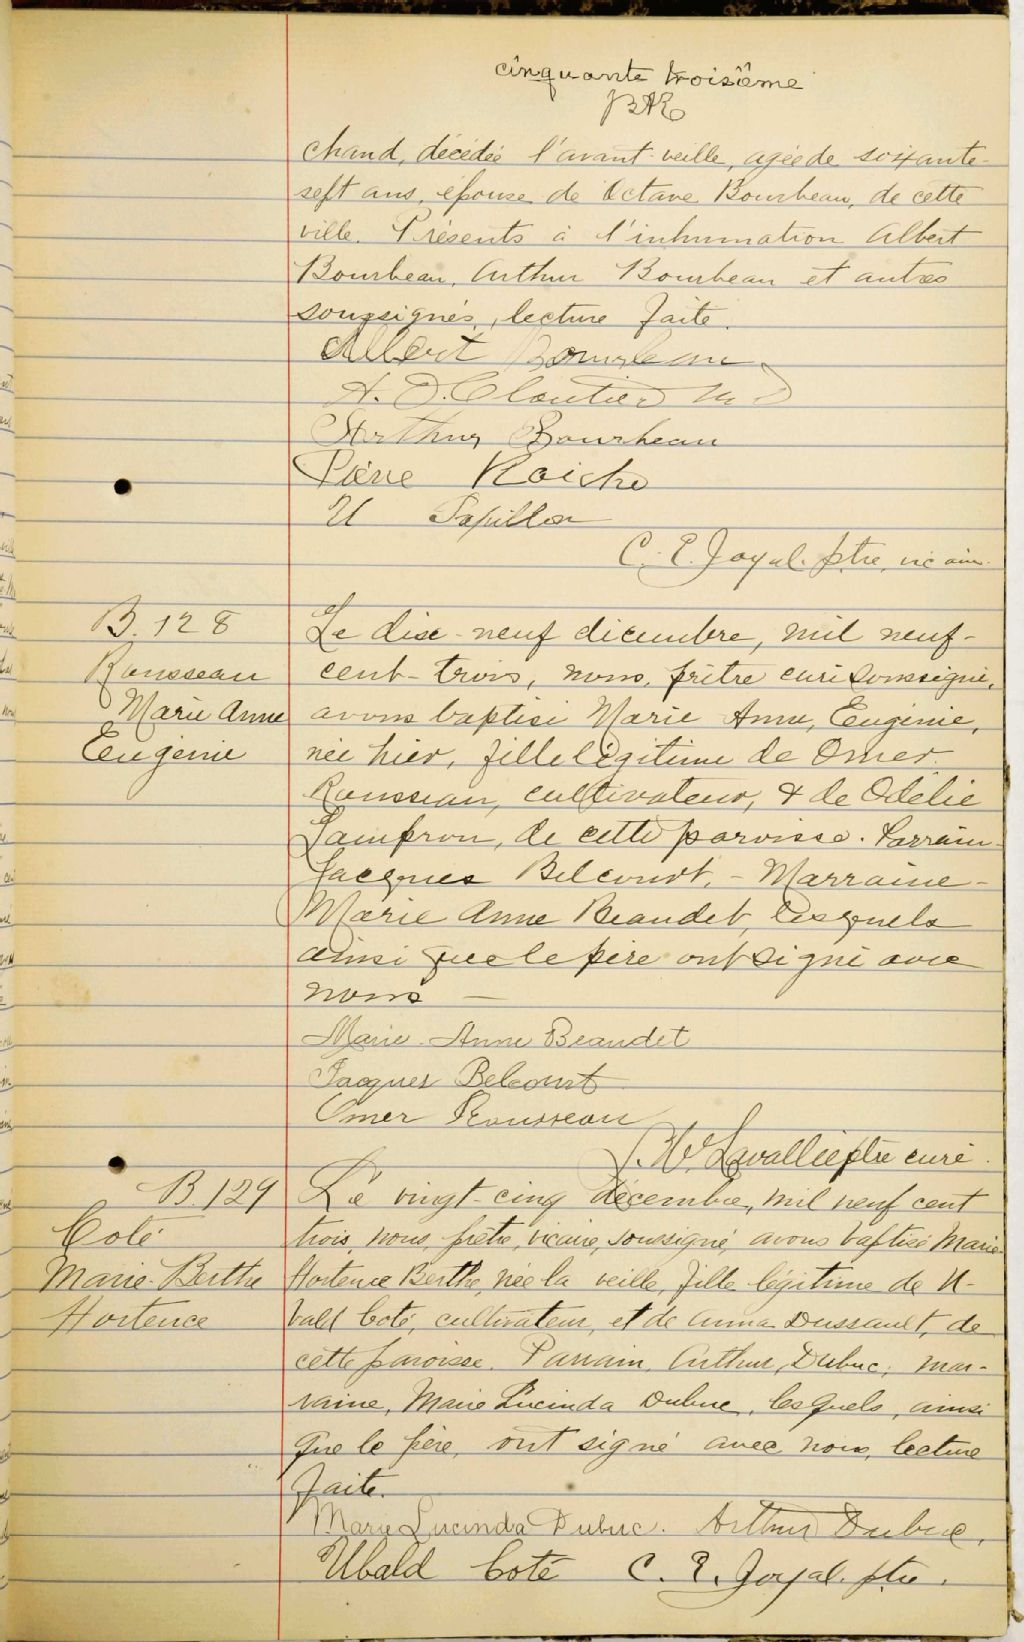 cinquante troisième
chand, décédée l'avant-veille, agée de soixante-
sept ans, épouse de Octave Bourbeau, de cette
ville. Présents à l'inhumation Albert
Bourbeau, Arthur Bourbeau et autres
soussignés, lecture faite.
Albert Bourbeau
A. O. Cloutier M D
Arthur Bourbeau
Pierre
U Papillon
C. E. Joyal. ptre, vicaire.
B. 128
Rousseau
Marie Anne
Eugénie
Le dix-neuf décembre, mil neuf-
cent-trois, nous, prêtre curé soussigné,
avons baptisé Marie Anne, Eugénie,
née hier, fille légitime de Omer
Rousseau, cultivateur, & de Odélie
Lampron, de cette paroisse. Parrain-
Jacques Belcourt, - Marraine-
Marie Anne Beaudet, lesquels
ainsi que le père ont signé avec
nous —
Marie-Anne Beaudet
Jacques Belcourt
Omer Rousseau
Lavallée ptre curé.
B. 129
Coté
Marie-Berthe
Hortence
Le vingt-cinq décembre, mil neuf cent
trois, nous, prêtre, vicaire, soussigné, avons baptisé Marie-
Hortence Berthe, née la veille, fille légitime de U-
bald Coté, cultivateur, et de Anna Dussault, de
cette paroisse. Parrain, Arthur Dubuc; mar-
raine, Marie Lucinda Dubuc, lesquels, ainsi
que le père, ont signé avec nous, lecture
faite.
Marie Lucinda Dubuc. Arthur Dubuc.
Ubald Coté C. E. Joyal. ptre.